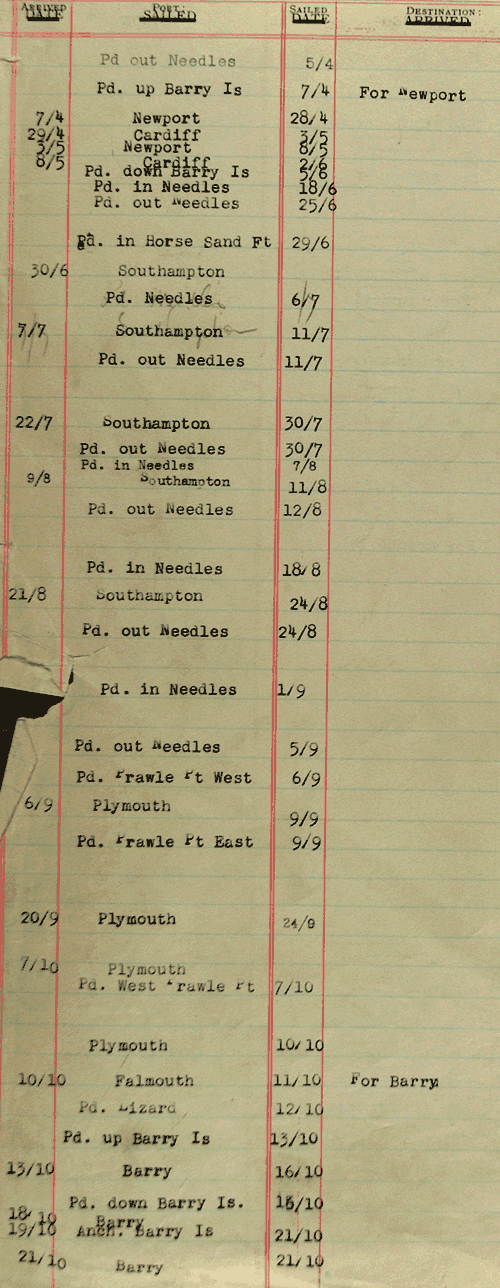 ARRIVED DATE PORT: SAILED SAILED DATE DESTINATION: ARRIVED
Pd out Needles 5/4
Pd. up Barry Is 7/4 For Newport
7/4 Newport 28/4
29/4 Cardiff 3/5
3/5 Newport 8/5
8/5 Cardiff 2/6
Pd. down Barry Is 5/6
Pd. in Needles 18/6
Pd. out Needles 25/6
Pd. in Horse Sand Ft 29/6
30/6 Southampton
Pd. Needles 6/7
7/7 Southampton 11/7
Pd. out Needles 11/7
22/7 Southampton 30/7
Pd. out Needles 30/7
Pd. in Needles 7/8
9/8 Southampton 11/8
Pd. out Needles 12/8
Pd. in Needles 18/8
21/8 Southampton 24/8
Pd. out Needles 24/8
Pd. in Needles 1/9
Pd. out Needles 5/9
Pd. Prawle Pt West 6/9
6/9 Plymouth 9/9
Pd. Prawle Pt East 9/9
20/9 Plymouth 24/9
7/10 Plymouth
Pd. West Prawle Pt 7/10
Plymouth 10/10
10/10 Falmouth 11/10 For Barry
Pd. Lizard 12/10
Pd. up Barry Is 13/10
13/10 Barry 16/10
Pd. down Barry Is. /10
18/10 Barry
19/10 Anch. Barry Is 21/10
21/10 Barry 21/10